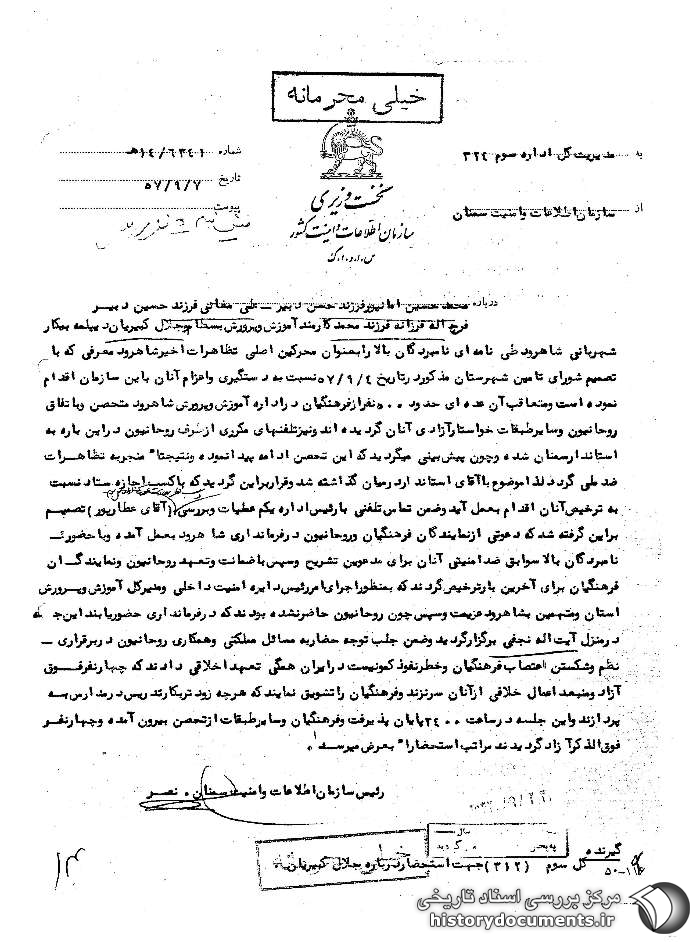 خیلی محرمانه
به مدیریت کل اداره سوم ۳۲۴
شماره ۱۴/۶۳۴۱هـ
تاریخ ۵۷/۹/۷
پیوست
از سازمان اطلاعات وامنیت سمنان
نخست وزیری
سازمان اطلاعات و امنیت کشور
س.ا.و.ا.ک
درباره محمد حسین امانپور فرزند حسن دبیر ــ علی مغانی فرزند حسین دبیر
فرج اله فرزانه فرزند محمد کارمند آموزش وپرورش بسطام وجلال کبیریان دیپلمه بیکار
شهربانی شاهرود طی نامه ای نامبردگان بالا را بعنوان محرکین اصلی تظاهرات اخیر شاهرود معرفی که با
تصمیم شورای تامین شهرستان مذکور در تاریخ ۵۷/۹/۴ نسبت به دستگیری واعزام آنان باین سازمان اقدام
نموده است ومتعاقب آن عده ای حدود ۵۰۰ نفر از فرهنگیان در اداره آموزش وپرورش شاهرود متحصن وباتفاق
روحانیون وسایر طبقات خواستار آزادی آنان گردیده اند ونیز تلفنهای مکرری از طرف روحانیون در این باره به
استاندار سمنان شده وچون پیش بینی میگردید که این تحصن ادامه پیدا نموده ونتیجتا" منجر به تظاهرات
ضد ملی گردد لذا موضوع با آقای استاندار در میان گذاشته شد وقرار براین گردید که با کسب اجازه ستاد نسبت
به ترخیص آنان اقدام بعمل آید وضمن تماس تلفنی با رئیس اداره یکم عملیات وبررسی (آقای عطارپور) تصمیم
براین گرفته شد که دعوتی از نمایندگان فرهنگیان وروحانیون در فرمانداری شاهرود بعمل آمده وبا حضور
نامبردگان بالا سوابق ضد امنیتی آنان برای مدعوین تشریح وسپس با ضمانت وتعهد روحانیون ونمایندگان
فرهنگیان برای آخرین بار ترخیص گردند که بمنظور اجرای امر رئیس دایره امنیت داخلی ومدیر کل آموزش وپرورش
استان ومتهمین بشاهرود عزیمت وسپس چون روحانیون حاضر نشده بودند که در فرمانداری حضور یابند این جلسه
در منزل آیت اله نجفی برگزار گردید وضمن جلب توجه حضار به مسائل مملکتی وهمکاری روحانیون در برقراری ــ
نظم وشکستن اعتصاب فرهنگیان وخطر نفوذ کمونیست در ایران همگی تعهد اخلاقی دادند که چهار نفر فوق
آزاد ومنبعد اعمال خلافی از آنان سر نزند وفرهنگیان را تشویق نمایند که هرچه زودتر بکار تدریس در مدارس به
پردازند واین جلسه در ساعت ۲۴۰۰ پایان پذیرفت وفرهنگیان وسایر طبقات از تحصن بیرون آمده وچهار نفر
فوق الذکر آزاد گردیدند مراتب استحضارا" بعرض میرسد.
رئیس سازمان اطلاعات وامنیت سمنان . نصر
گیرنده
کل سوم (۳۱۲) جهت استحضار درباره جلال کبیریان .
خیلی محرمانه
۱۴
مرکز بررسی اسناد تاریخی
historydocuments.ir